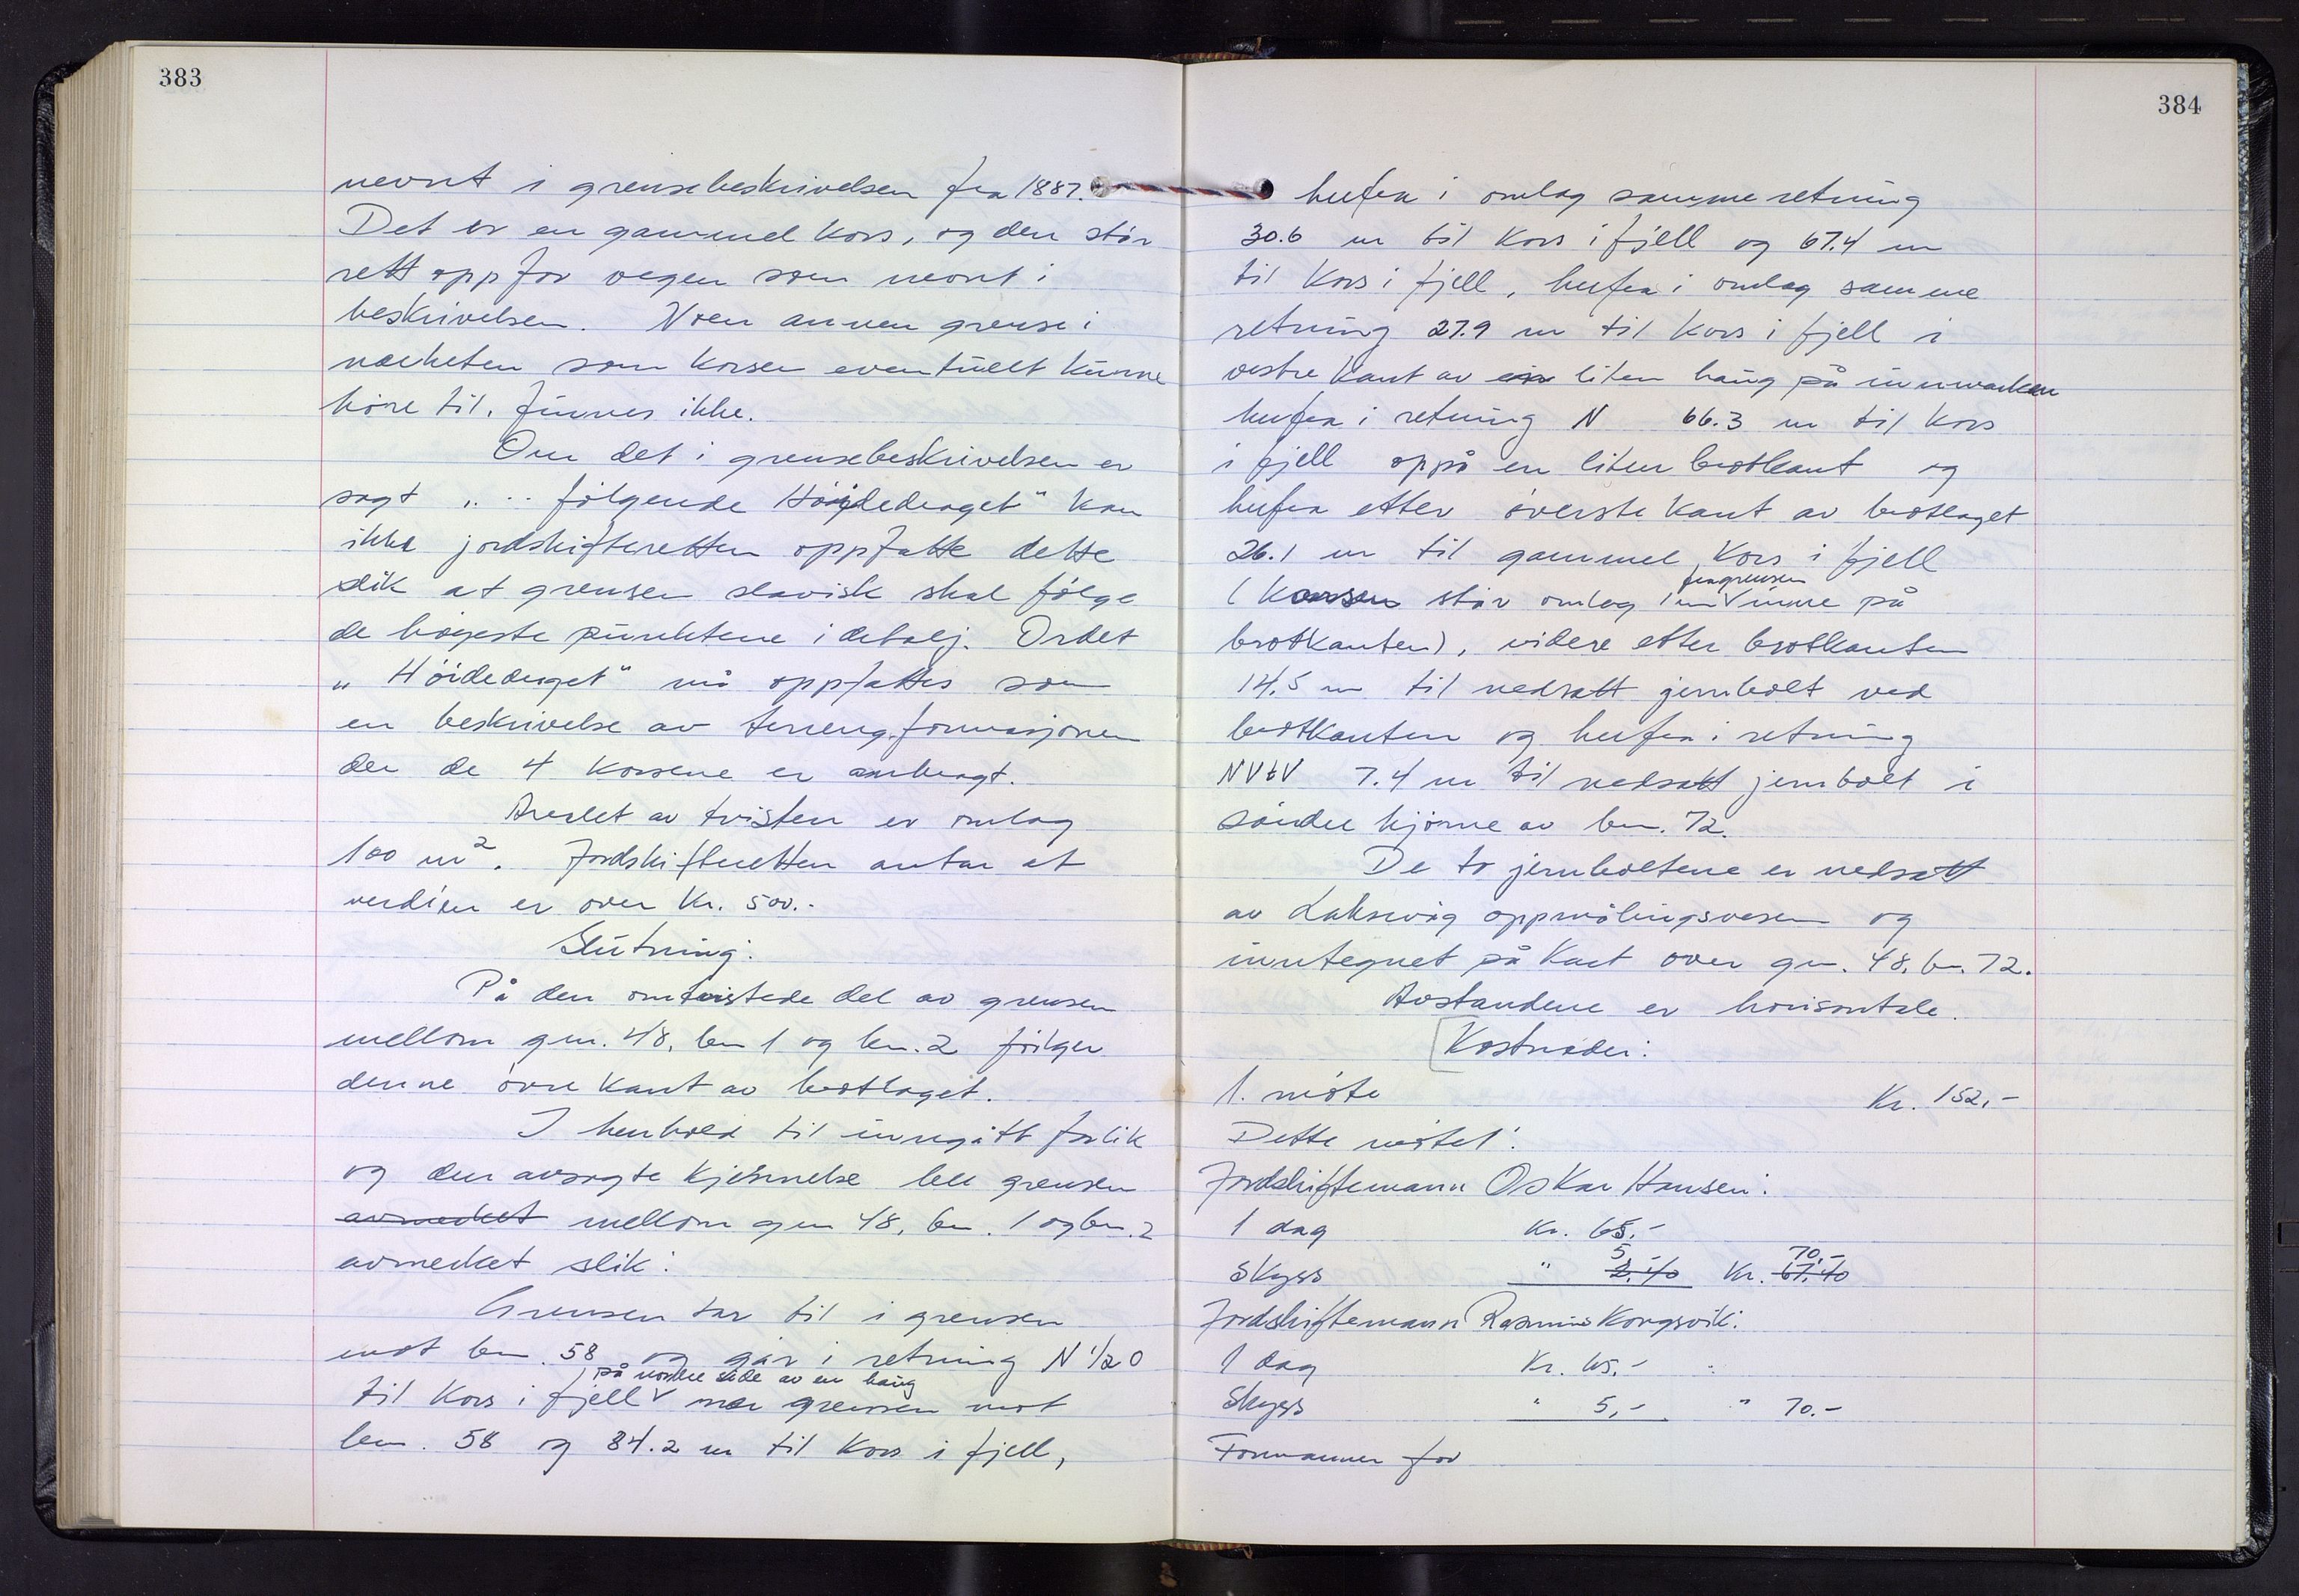 383
nevnt i grensebeskrivelsen fra 1887.
Det er en gammel kors, og den står
rett opp for vegen som nevnt i
beskrivelsen. Noen annen grense i
nærheten som korsen eventuelt kunne
høre til, finnes ikke.
Om det i grensebeskrivelsen er
sagt „ .. følgende Høidedraget" kan
ikke jordskifteretten oppfatte dette
slik at grensen slavisk skal følge
de høgeste punktene i detalj. Ordet
„Høidedraget" må oppfattes som
en beskrivelse av terrengformasjonen
der de 4 korsene er anbragt.
Arealet av tvisten er omlag
100 m². Jordskifteretten antar at
verdien er over kr. 500.-
Slutning:
På den omtvistede del av grensen
mellom gnr. 48, bnr 1 og bnr. 2 følger
denne øvre kant av brotlaget.
I henhold til inngått forlik
og den avsagte kjennelse ble grensen
avmerket mellom gnr 48, bnr. 1 og bnr. 2
avmerket slik:
Grensen tar til i grensen
mot bnr. 58 og går i retning N ½ O
på nordre side av en haug
til kors i fjell nær grensen mot
bnr. 58 og 84.2 m til kors i fjell,
384
herfra i omlag samme retning
30.6 m til kors i fjell og 67.4 m
til kors i fjell, herfra i omlag samme
retning 27.9 m til kors i fjell i
vestre kant av en liten haug på innmarken
herfra i retning N 66.3 m til kors
i fjell oppå en liten brotkant og
herfra etter øverste kant av brotlaget
26.1 m til gammel kors i fjell
fra grensen
(Korsen står omlag 1 m inne på
brotkanten), videre etter brotkanten
14.5 m til nedsatt jernbolt ved
brotkanten og herfra i retning
NVtV 7.4 m til nedsatt jernbolt i
søndre hjørne av bnr. 72.
De to jernboltene er nedsatt
av Laksevåg oppmålingsvesen og
inntegnet på kart over gnr. 48, bnr. 72.
Avstandene er horisontale.
Kostnader:
1. møte Kr. 152,-
Dette møtet:
Jordskiftemann Oskar Hansen:
1 dag Kr. 65,-
5,- 70,-
Skyss " 2,40 Kr. 67,40
Jordskiftemann Rasmus Kongsvik:
1 dag Kr. 65,-
Skyss " 5,- " 70.-
Formannen for